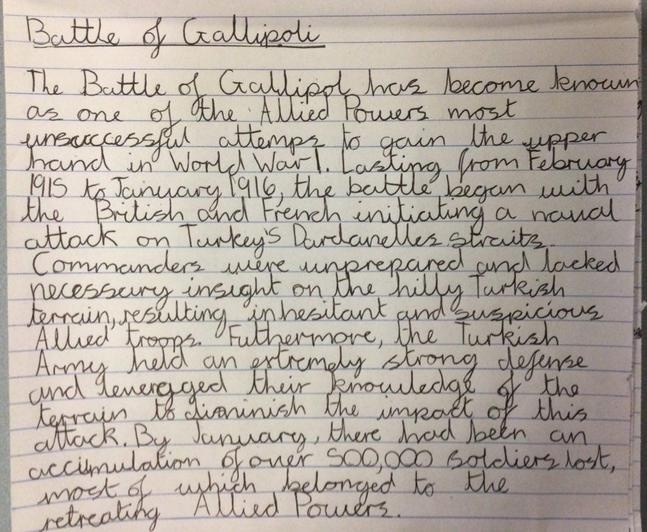 Battle of Gallipoli
The Battle of Gallipol has become known
as one of the Allied Powers most
unsuccessful attemps to gain the upper
hand in World War I. Lasting from February
1915 to January 1916, the battle began with
the British and French initiating a naval
attack on Turkey's Dardanelles straits.
Commanders were unprepared and lacked
necessary insight on the hilly Turkish
terrain, resulting in hesitant and suspicious
Allied troops. Futhermore, the Turkish
Army held an extremely strong defense
and leveraged their knowledge of the
terrain to diminish the impact of this
attack. By January, there had been an
accumulation of over 500,000 soldiers lost,
most of which belonged to the
retreating Allied Powers.